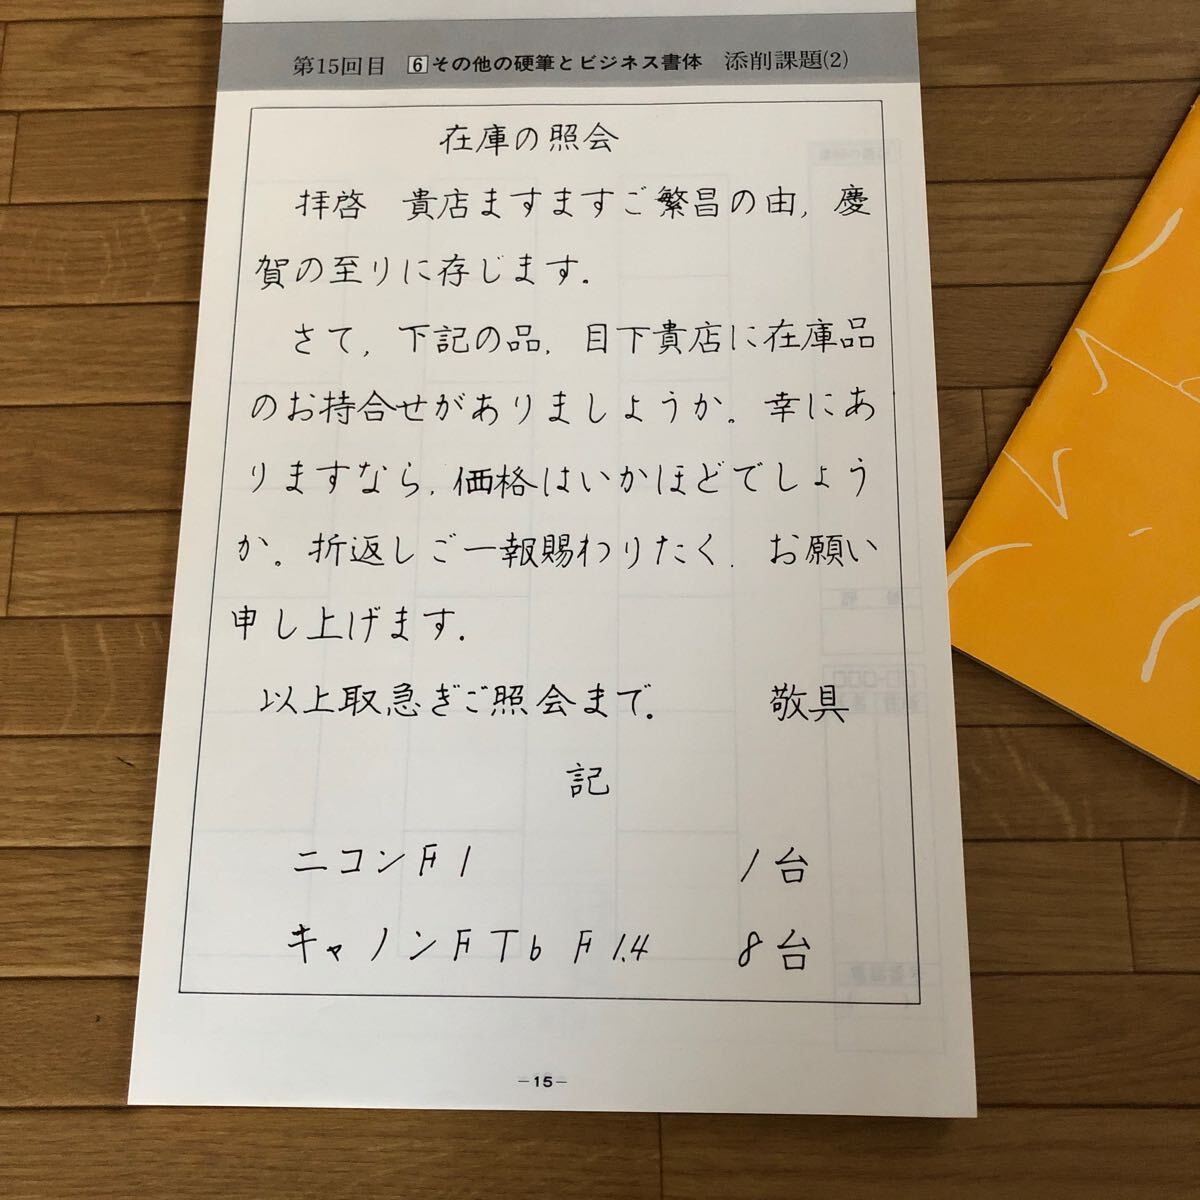 第15回目 6 その他の硬筆とビジネス書体 添削課題(2)
在庫の照会
拝啓 貴店ますますご繁昌の由,慶
賀の至りに存じます.
さて,下記の品,目下貴店に在庫品
のお持合せがありましょうか。幸にあ
りますなら,価格はいかほどでしょう
か。折返しご一報賜わりたく,お願い
申し上げます.
以上取急ぎご照会まで. 敬具
記
ニコンF1 1台
キャノンFTb F1.4 8台
-15-